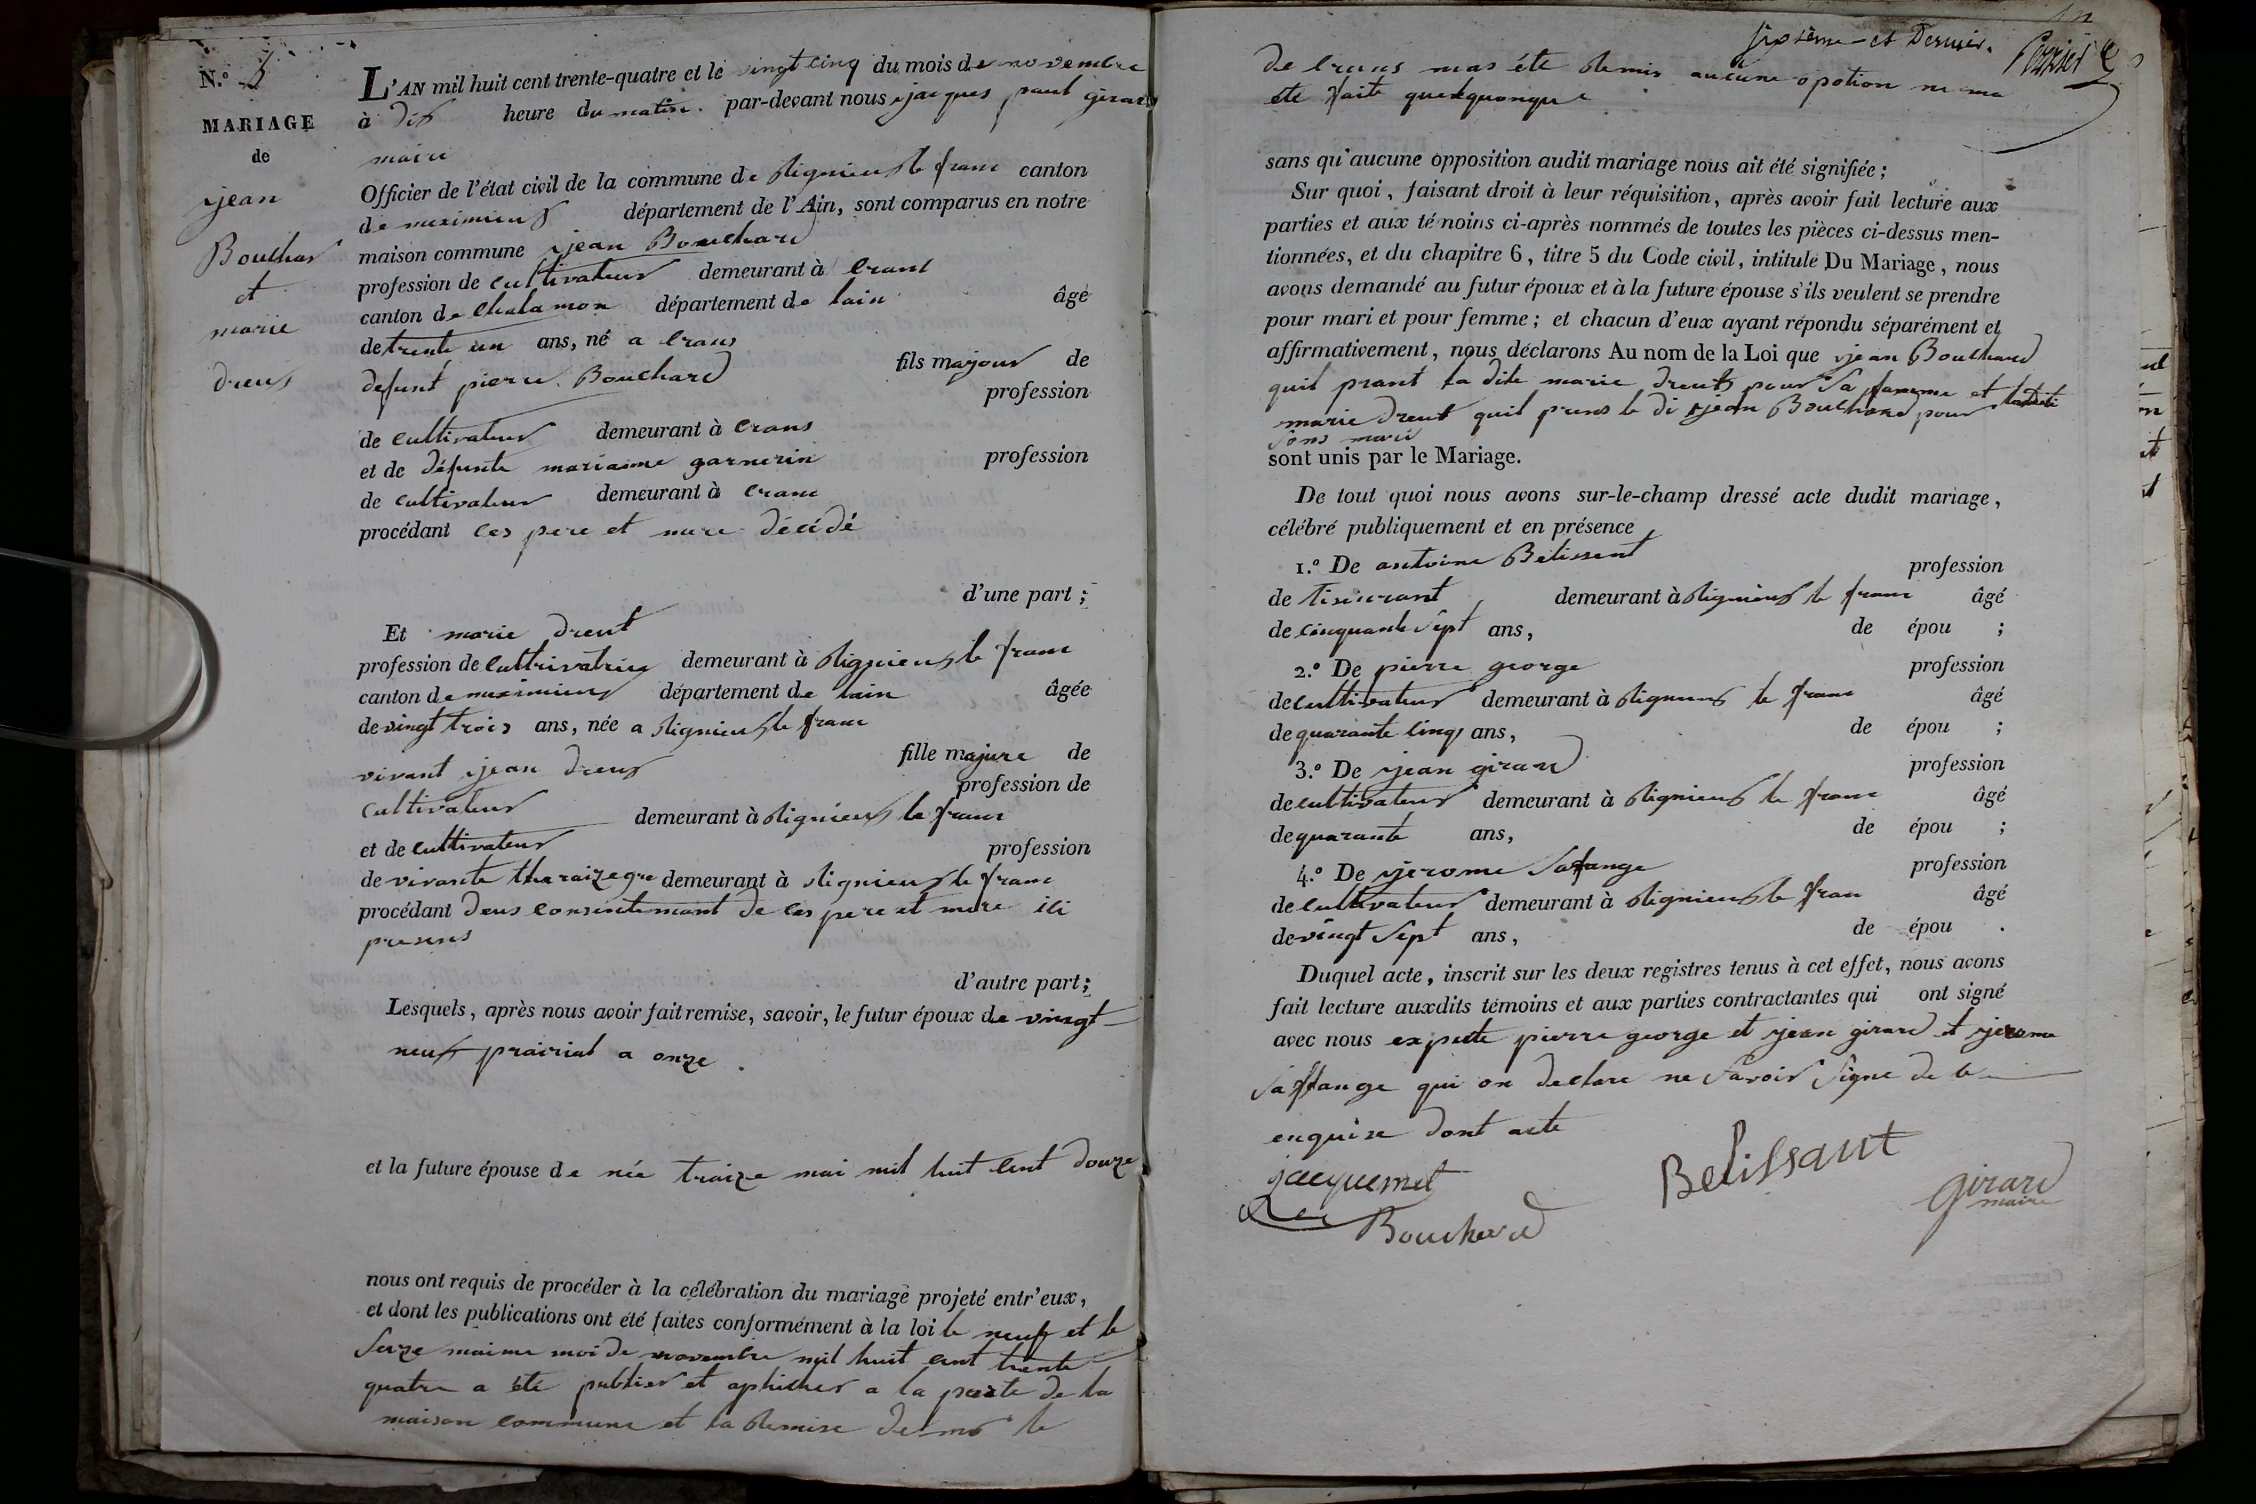 N.º 5
MARIAGE
de
jean
Bouchar
et
marie
dreus
L'AN mil huit cent trente-quatre et le vingt cinq du mois de novembre
à dix heure du matin. par-devant nous jacques paul girard
maire
Officier de l'état civil de la commune de rignieux le franc canton
de meximieux département de l'Ain, sont comparus en notre
maison commune jean Bouchard
profession de cultivateur demeurant à crans
canton de chalamon département de lain âgé
de trente un ans, né a crans
fils majour de
defunt pierre Bouchard profession
de cultivateur demeurant à crans
et de défunte mariaine garnerin profession
de cultivateur demeurant à crans
procédant ces pere et mere décédé
d'une part ;
Et marie dreut
profession de cultivatrice demeurant à rignieux le franc
canton de meximieux département de lain âgée
de vingt trois ans, née a rignieux le franc
fille majure de
vivant jean dreus profession de
cultivateur demeurant à rignieux le franc
et de cultivateur profession
de vivante demeurant à rignieux le franc
procédant deus consentemant de ces pere et mere ici
presens
d'autre part ;
Lesquels, après nous avoir fait remise, savoir, le futur époux de vingt
neuf prairial a onze
et la future épouse de née traize mai mil huit cent douze
nous ont requis de procéder à la célébration du mariage projeté entr'eux,
et dont les publications ont été faites conformément à la loi le neuf et le
seize maime moi de novembre mil huit cent trente
quatre a été publier et aphicher a la porte de la
maison commune et la remise de mr le
sixième et Dernier.
Perrier
de crans mas été remis aucune opotion ne ma
ete faite quelquonque
sans qu'aucune opposition audit mariage nous ait été signifiée ;
Sur quoi, faisant droit à leur réquisition, après avoir fait lecture aux
parties et aux témoins ci-après nommés de toutes les pièces ci-dessus men-
tionnées, et du chapitre 6, titre 5 du Code civil, intitulé Du Mariage, nous
avons demandé au futur époux et à la future épouse s'ils veulent se prendre
pour mari et pour femme ; et chacun d'eux ayant répondu séparément et
affirmativement, nous déclarons Au nom de la Loi que jean Bouchard
quil prant la dite marie dreut pour sa famme et ladite
marie dreut quil prens le di jean Bouchard pour
sons mari
sont unis par le Mariage.
De tout quoi nous avons sur-le-champ dressé acte dudit mariage,
célébré publiquement et en présence
1.º De antoine Belissent profession
de tiseurant demeurant à rignieux le franc âgé
de cinquante sept ans, de épou ;
2.º De pierre george profession
de cultivateur demeurant à rignieux le franc âgé
de quarante cinq ans, de épou ;
3.º De jean girard profession
de cultivateur demeurant à rignieux le franc âgé
de quarante ans, de épou ;
4.º De jerome Saffange profession
de cultivateur demeurant à rignieux le fran âgé
de vingt sept ans, de épou .
Duquel acte, inscrit sur les deux registres tenus à cet effet, nous avons
fait lecture auxdits témoins et aux parties contractantes qui ont signé
avec nous expette pierre george et jean girard et jerome
Saffange qui on declare ne savoir signe de ce
enquise dont acte
jacquemet
Belissant
girard
maire
Bouchard